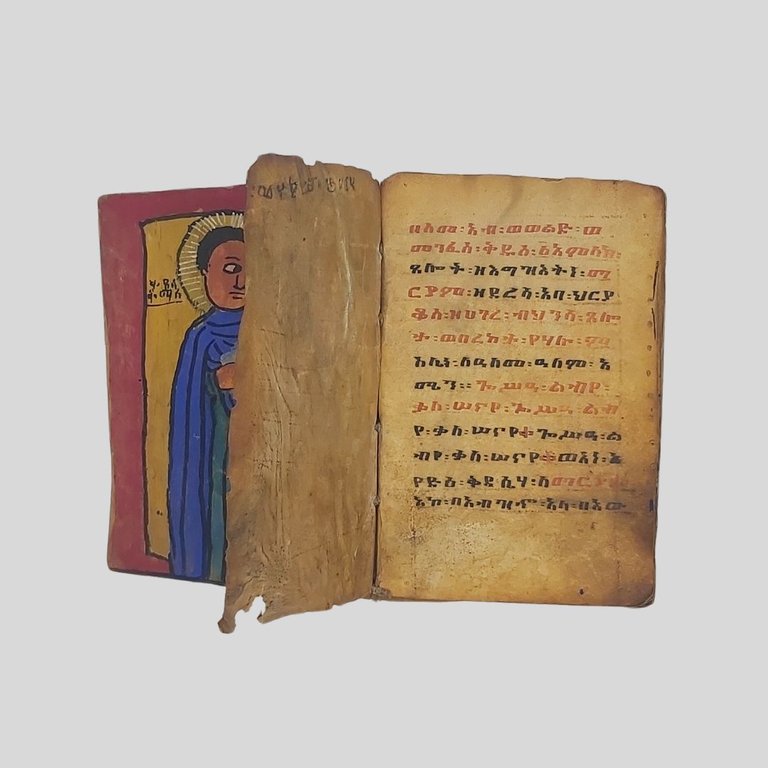 በስመ፡አብ፡ወወልድ፡ወ
መንፈስ፡ቅዱስ፡፩አምላክ
ጸሎት፡ዘእግዝእትነ፡ማ
ርያም፡ዘደረሰ፡አባ፡ህርያ
ቆስ፡ዘሀገረ፡ብህንሳ፡ጸሎ
ታ፡ወበረከታ፡የሃሉ፡
ለዓለመ፡ዓለም፡አ
ሜን፡፡ጐሥዓ፡ልብየ፡
ቃለ፡ሠናየ፡ጐሥዓ፡ልብ
የ፡ቃለ፡ሠናየ፡ጐሥዓ፡ል
ብየ፡ቃለ፡ሠናየ፡ወአነ፡እ
የድዕ፡ቅዳሴሃ፡ለማርያም
አኮ፡በአብዝኆ፡አላ፡በአው